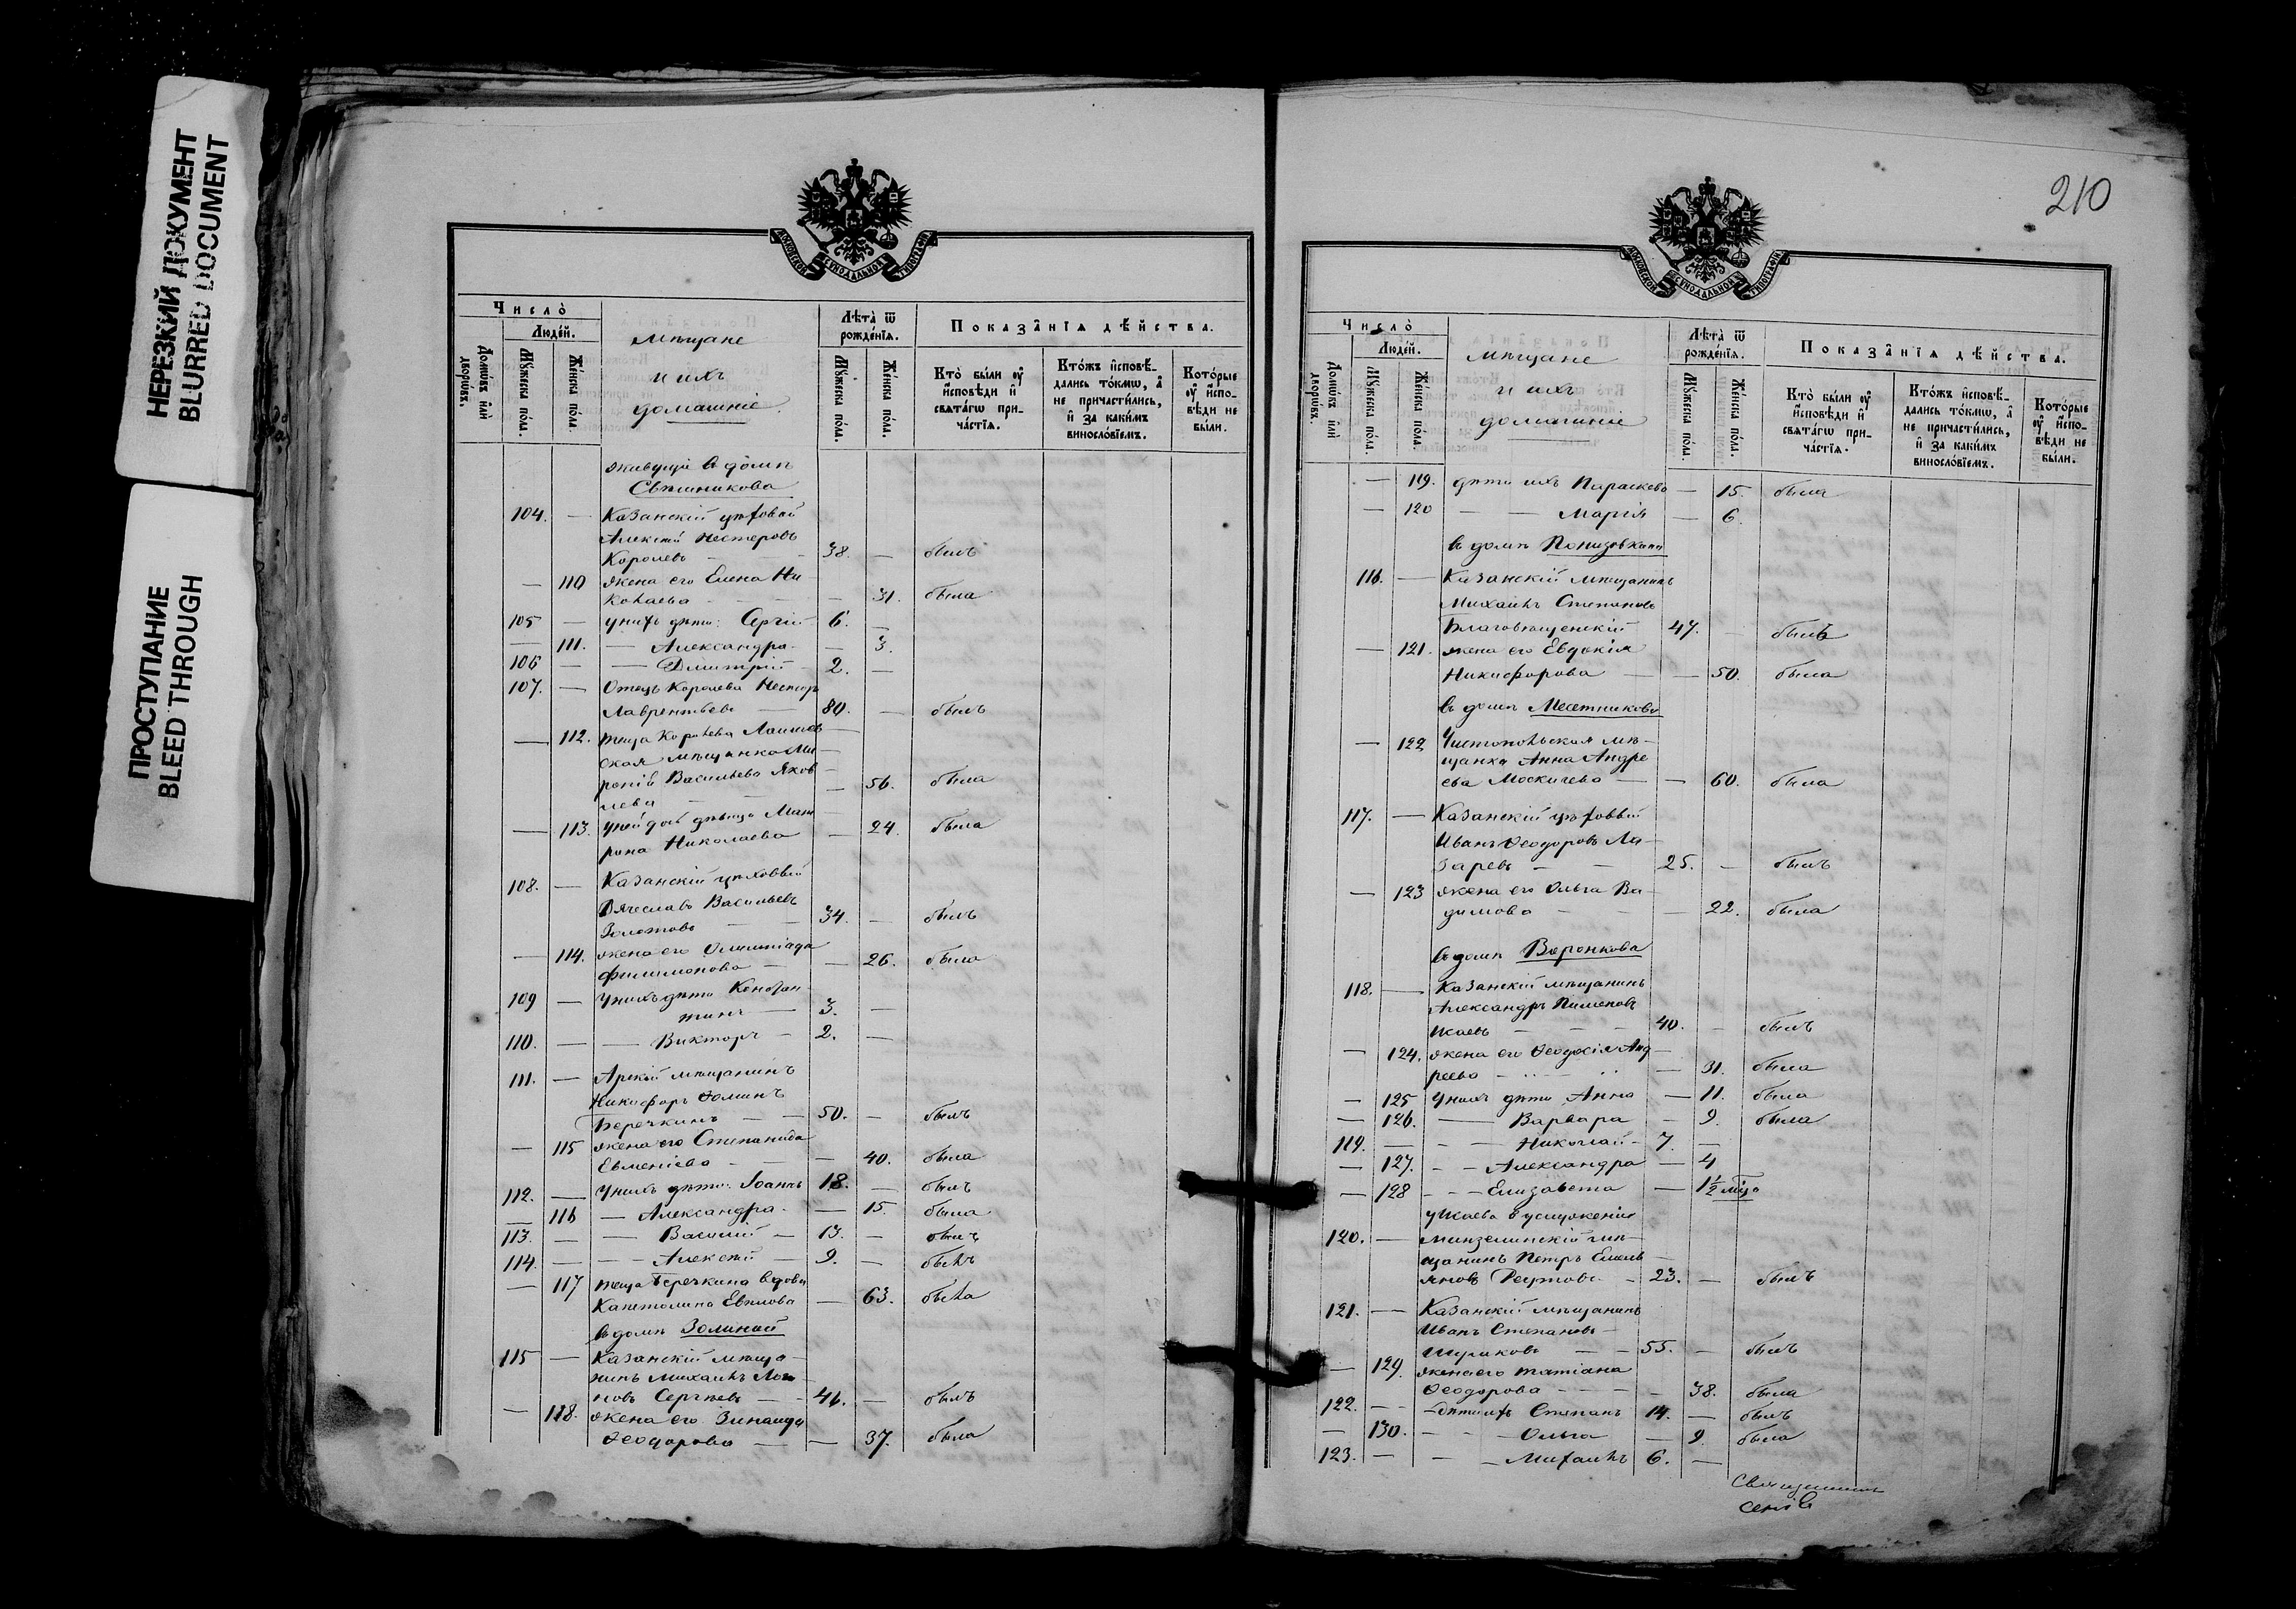 НЕРЕЗКИЙ ДОКУМЕНТ
BLURRED DOCUMENT
ПРОСТУПАНИЕ
BLEED THROUGH
МОСКОВСКОЙ СѴНОДАЛЬНОЙ ТИПОГРАФІИ
Число̀
Людей.
Домѡвъ и҆лѝ дворѡвъ.
Мꙋжеска пола.
Женска пола.
Мѣщане
и ихъ
домашніе
Лѣта̀ ѿ рожденїѧ.
Мꙋжеска пола.
Женска пола.
Показанїѧ дѣйства.
Кто̀ были ᲂу҆ и҆сповѣди и҆ свѧтагѡ причастїѧ.
Ктожъ и҆сповѣдались токмѡ, а҆ не причастились, и҆ за какимъ винословїемъ.
Которые ᲂу҆ и҆сповѣди не были.
живущіе въ домѣ
Свѣшникова
104. — Казанскій цѣховой
Алексѣй Нестеровъ
Королевъ — 38. — былъ
— 110 жена его Елена Ни-
колаева — 31. была
105 — у нихъ дѣти: Сергій — 6. —
— 111. — Александра — 3.
106 — — Димитрій — 2. —
107. — Отецъ Королева Несторъ
Лаврентьевъ — 80. — былъ
— 112. теща Королева Лаишев-
ская мѣщанка Ми-
ропія Васильева Яков-
лева — 56. была
— 113. у ней дочь дѣвица Мат-
рона Николаева — 24. была
108. — Казанскій цѣховый
Вячеславъ Васильевъ
Золотовъ — 34. — былъ
— 114. жена его Олимпіада
Филимонова — 26. была
109 — у нихъ дѣти Констан-
тинъ — 3. —
110. — — Викторъ — 2. —
111. — Арскій мѣщанинъ
Никифоръ Ѳоминъ
Беречкинъ — 50. — былъ
— 115 жена его Степанида
Евменіева — 40. была
112. — у нихъ дѣти: Іоаннъ 18. — былъ
— 116 — Александра — 15. была
113. — — Василій — 13. — былъ
114. — — Алексѣй — 9. — былъ
— 117 теща Беречкина вдова
Капитолина Евплова — 63. была
въ домѣ Золиной
115 — Казанскій мѣща-
нинъ Михаилъ Логи-
новъ Сергѣевъ — 46. — былъ
— 118. жена его Зинаида
Ѳеодорова — — 37. была
210
МОСКОВСКОЙ СѴНОДАЛЬНОЙ ТИПОГРАФІИ
Число̀
Людей.
Домѡвъ и҆лѝ дворѡвъ.
Мꙋжеска пола.
Женска пола.
Мѣщане
и ихъ
домашніе
Лѣта̀ ѿ рожденїѧ.
Мꙋжеска пола.
Женска пола.
Показанїѧ дѣйства.
Кто̀ были ᲂу҆ и҆сповѣди и҆ свѧтагѡ причастїѧ.
Ктожъ и҆сповѣдались токмѡ, а҆ не причастились, и҆ за какимъ винословїемъ.
Которые ᲂу҆ и҆сповѣди не были.
— 119. дѣти ихъ Параскева — 15. была
— 120 — — Марія — 6.
въ домѣ Понизовкина
116. — Казанскій мѣщанинъ
Михаилъ Степановъ
Благовѣщенскій 47. — былъ
— 121. жена его Евдокія
Никифорова — — 50. была
въ домѣ Месетникова
— 122 Чистопольская мѣ-
щанка Анна Андре
ева Москичева — — 60. была
117. — Казанскій цѣховый
Иванъ Ѳеодоровъ Ла-
заревъ — 25. — былъ
— 123 жена его Ольга Ва-
димова — — 22. была
въ домѣ Воронкова
118. — Казанскій мѣщанинъ
Александръ Пименовъ
Исаевъ — 40. — былъ
— 124. жена его Ѳеодосія Анд-
реева — 31. была
— 125 у нихъ дѣти Анна — 11. была
— 126. — Варвара — 9. была
119. — — Николай — 7. —
— 127. — — Александра — 4
— 128 — — Елизавета — 1½ мѣс
у Исаева въ услуженіи
120. — Мензелинскій мѣ-
щанинъ Петръ Емель-
яновъ Реутовъ — 23. — былъ
121. — Казанскій мѣщанинъ
Иванъ Степановъ
Шуриковъ — 55. — былъ
— 129. жена его Татіана
Ѳеодорова — — 38. была
122. — дѣти ихъ Степанъ 14. — былъ
— 130. — — Ольга — 9. была
123. — — Михаилъ 6. —
Священникъ